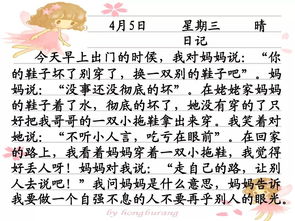 4月5日 星期三 晴
日记
今天早上出门的时候，我对妈妈说：“你
的鞋子坏了别穿了，换一双别的鞋子吧”。妈
妈说：“没事还没彻底的坏”。在姥姥家妈妈
的鞋子着了水，彻底的坏了，她没有穿的了只
好把我哥哥的一双小拖鞋拿出来穿。我笑着对
她说：“不听小人言，吃亏在眼前”。在回家
的路上，我看着妈妈穿着一双小拖鞋，我觉得
好丢人呀！妈妈对我说：“走自己的路，让别
人去说吧！”我问妈妈是什么意思，妈妈告诉
我要做一个自强不息的人不要再乎别人的眼光。
by hongburang